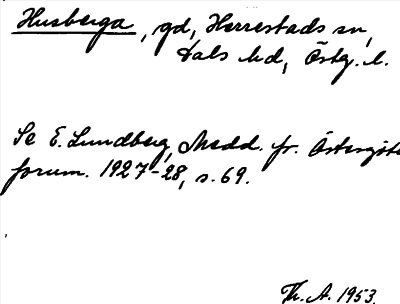 Husberga, gd, Herrestads sn,
Dals hd, Östg. l.
Se E. Lundberg, Medd. fr. Östergötl
fornm. 1927-28, s. 69.
Th. A. 1953.